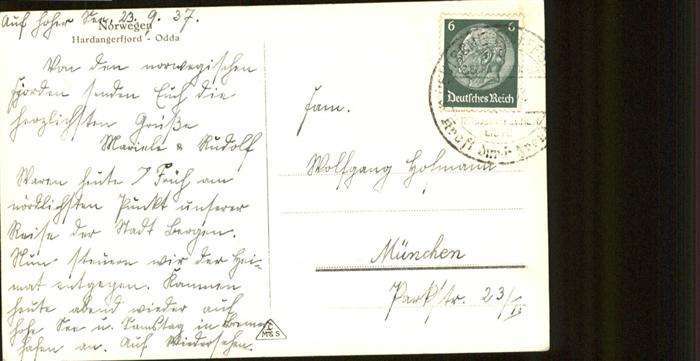 Auf hoher See, 23. 9. 37.
Norwegen
Hardangerfjord - Odda
Von den norwegischen
Fjorden senden Euch die
herzlichsten Grüße
Mariele & Rudolf
Waren heute 7 Früh am
nördlichsten Punkt unserer
Reise der Stadt Bergen.
Nun steuern wir der Hei-
mat entgegen. Kommen
heute abend wieder auf
hohe See u. Samstag in Bremer-
hafen an. Auf Wiedersehen.
6 6
Deutsches Reich
Kraft durch
Fam.
Wolfgang Hofmann
München
Parkstr. 23/II
M&S